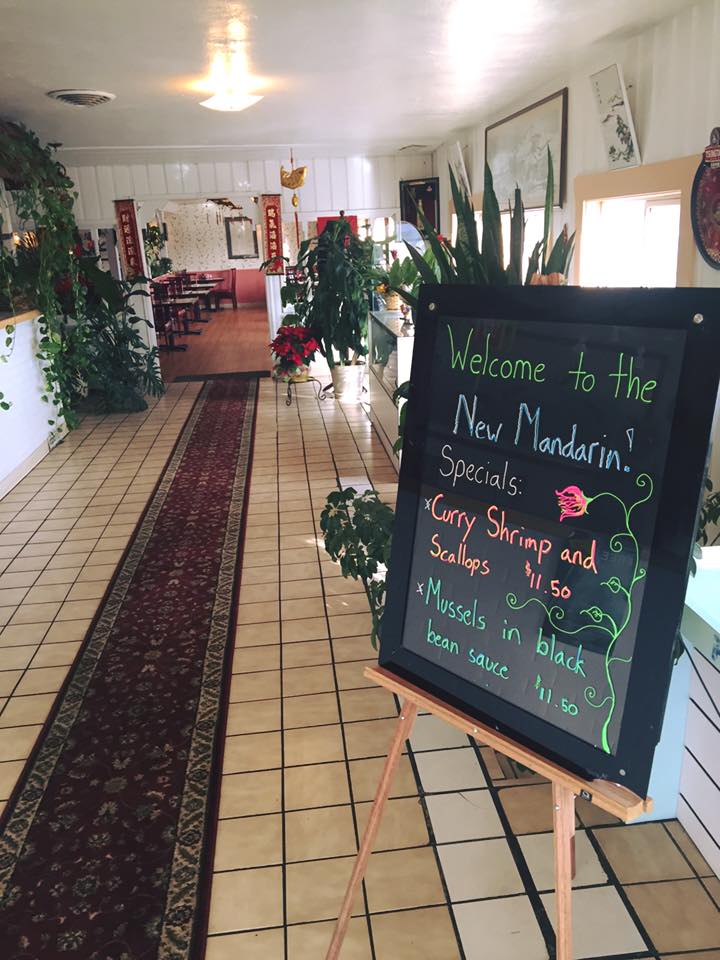 Welcome to the
New Mandarin!
Specials:
xCurry Shrimp and
Scallops $11.50
xMussels in black
bean sauce $11.50